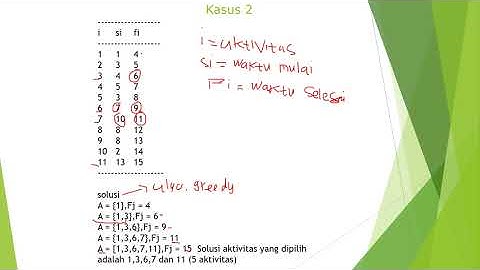 Kasus 2
i si fi
1 1 4
2 2 5
3 4 6
4 5 7
5 3 8
6 7 9
7 10 11
8 8 12
9 8 13
10 2 14
11 13 15
i = aktivitas
si = waktu mulai
Fi = waktu selesai
solusi → algo. greedy
A = {1},Fj = 4
A = {1,3},Fj = 6
A = {1,3,6},Fj = 9
A = {1,3,6,7},Fj = 11
A = {1,3,6,7,11},Fj = 15 Solusi aktivitas yang dipilih
adalah 1,3,6,7 dan 11 (5 aktivitas)